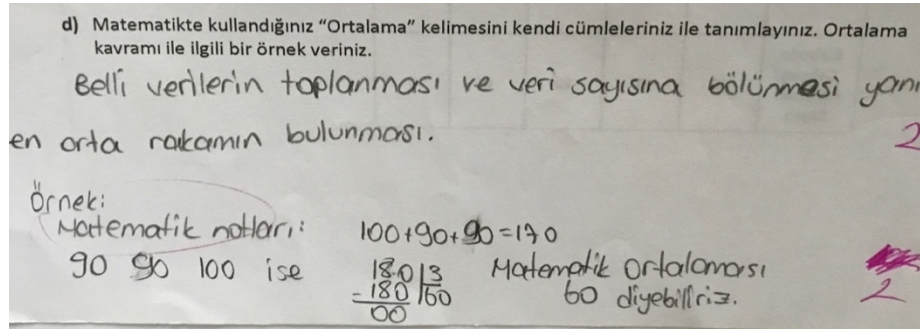 d) Matematikte kullandığınız “Ortalama” kelimesini kendi cümleleriniz ile tanımlayınız. Ortalama
kavramı ile ilgili bir örnek veriniz.
Belli verilerin toplanması ve veri sayısına bölünmesi yani
en orta rakamın bulunması.
2
Örnek:
Matematik notları: 100+90+90=170
90 90 100 ise 180 3 Matematik Ortalaması
- 180 60 60 diyebiliriz.
00
2